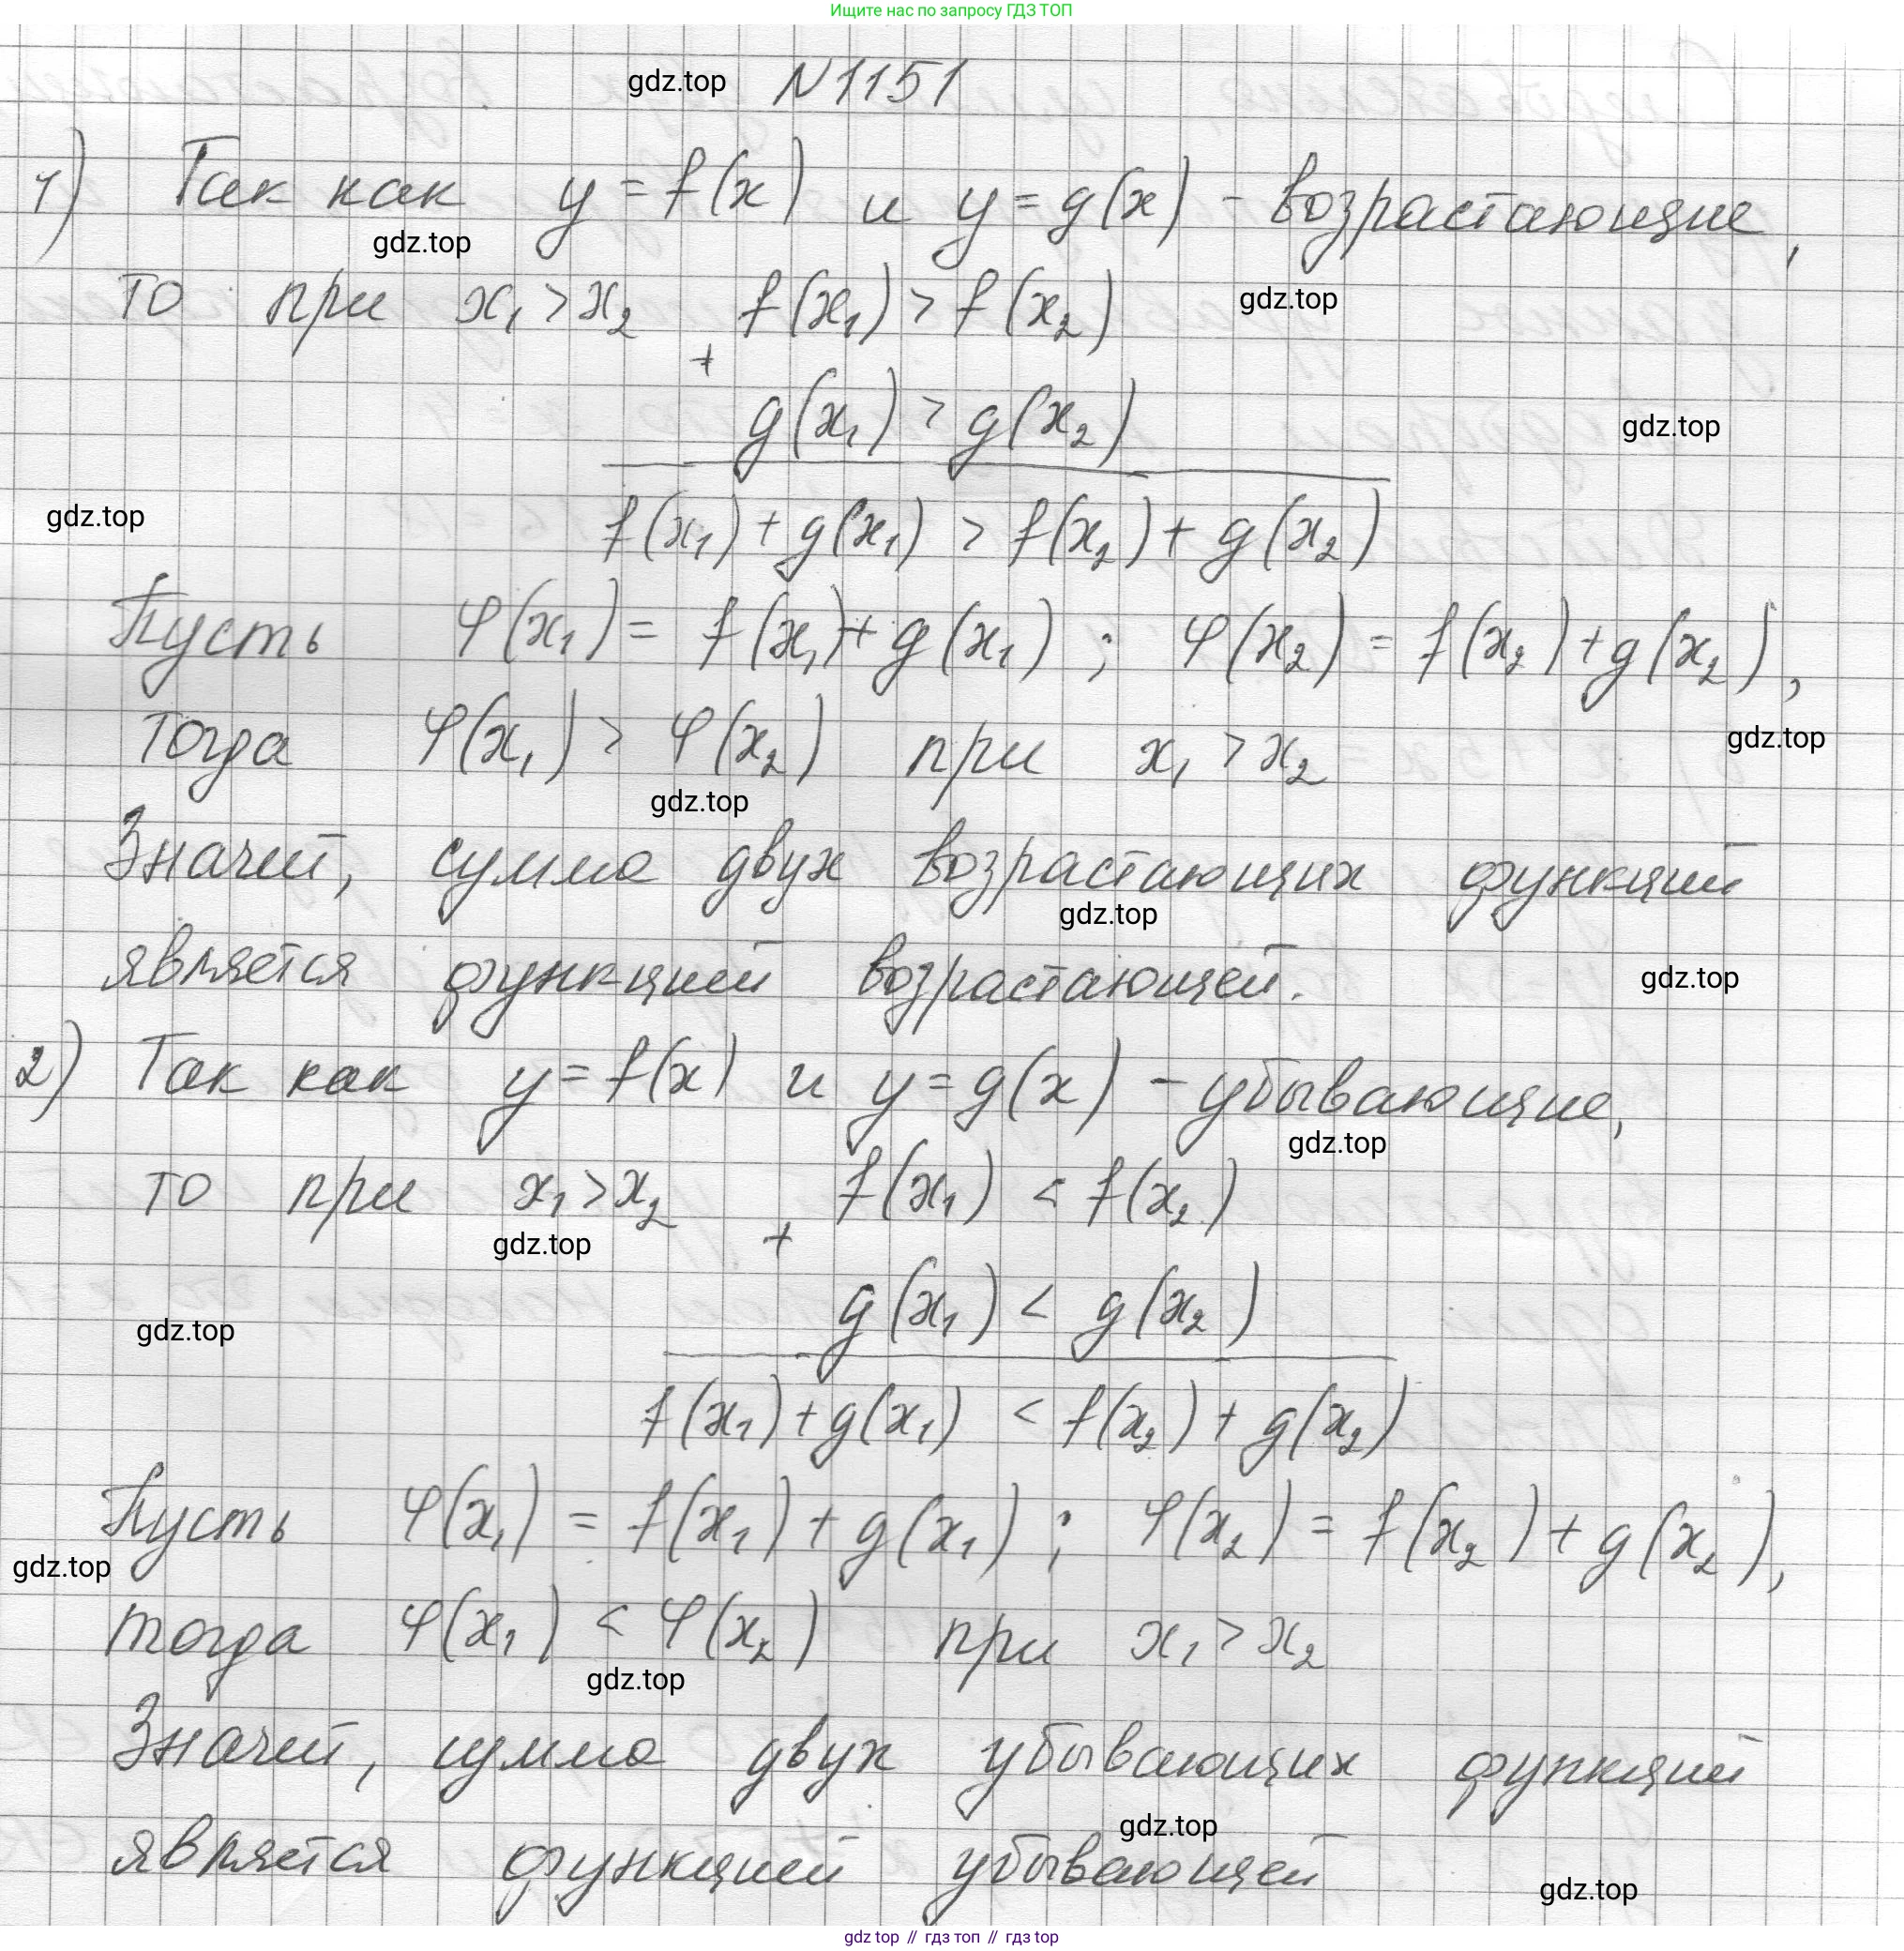 Ищите нас по запросу ГДЗ ТОП
gdz.top N 1151
1) Так как y = f(x) и y = g(x) - возрастающие,
gdz.top
то при x₁ > x₂ f(x₁) > f(x₂) gdz.top
+
g(x₁) > g(x₂) gdz.top
gdz.top
f(x₁) + g(x₁) > f(x₂) + g(x₂)
Пусть φ(x₁) = f(x₁) + g(x₁) ; φ(x₂) = f(x₂) + g(x₂),
тогда φ(x₁) > φ(x₂) при x₁ > x₂ gdz.top
gdz.top
Значит, сумма двух возрастающих функций
gdz.top
является функцией возрастающей. gdz.top
2) Так как y = f(x) и y = g(x) - убывающие,
gdz.top
то при x₁ > x₂ f(x₁) < f(x₂)
gdz.top +
g(x₁) < g(x₂)
gdz.top
f(x₁) + g(x₁) < f(x₂) + g(x₂)
Пусть φ(x₁) = f(x₁) + g(x₁) ; φ(x₂) = f(x₂) + g(x₂),
gdz.top
тогда φ(x₁) < φ(x₂) при x₁ > x₂
gdz.top
Значит, сумма двух убывающих функций
gdz.top
является функцией убывающей
gdz.top
gdz top // гдз топ // гдз top